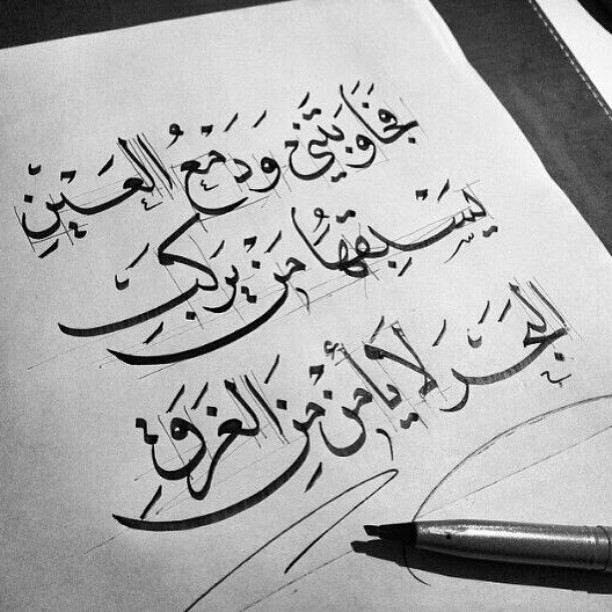 فَجَاوَبَتْنِي وَدَمْعُ العَيْنِ
يَسْبِقُهَا مَنْ يَرْكَبِ
البَحْرَ لَا يَأْمَنْ مِنَ الغَرَقِ